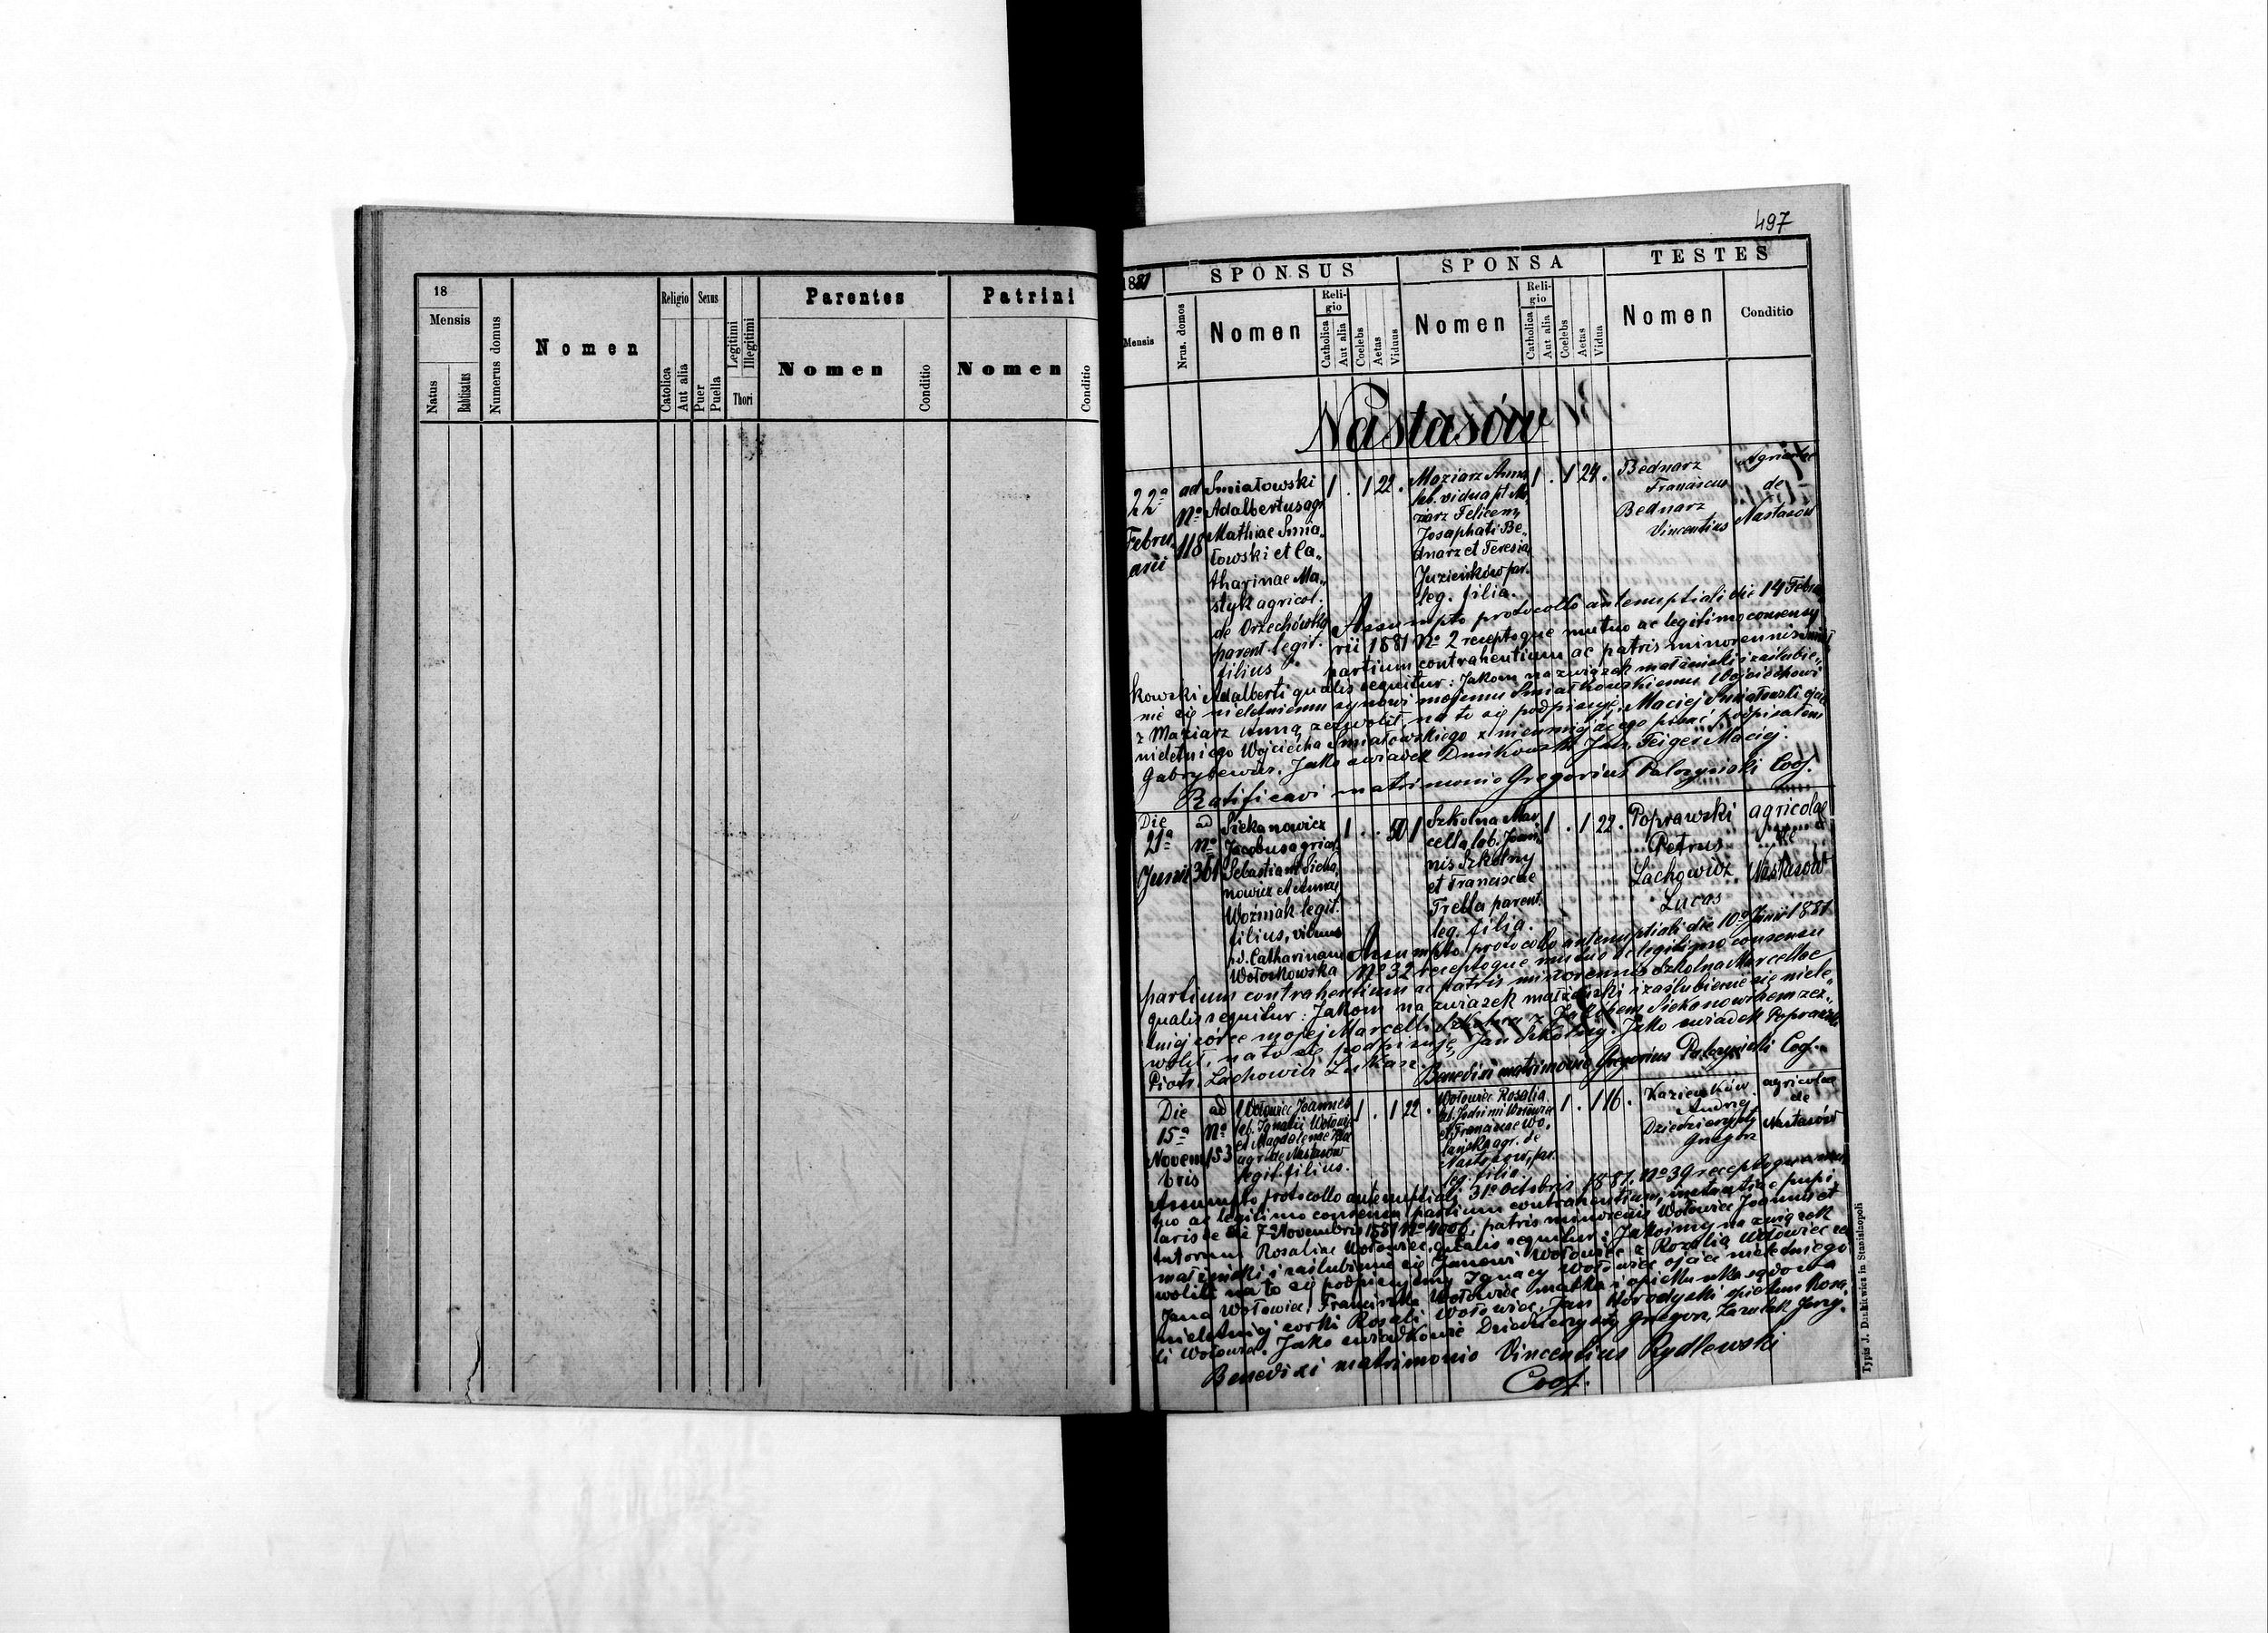 18
Mensis
Natus
Babtisatus
Numerus domus
Nomen
Religio
Catolica
Aut alia
Sexus
Puer
Puella
Legitimi
Illegitimi
Thori
Parentes
Nomen
Conditio
Patrini
Nomen
Conditio
497
1881
Mensis
Nrus. domos
SPONSUS
Nomen
Reli-
gio
Catholica
Aut alia
Coelebs
Aetas
Viduus
SPONSA
Nomen
Reli-
gio
Catholica
Aut alia
Coelebs
Aetas
Vidua
TESTES
Nomen
Conditio
Nastasów
22a
Febru
arii
ad
No
118
Smiałowski
Adalbertus agr
Mathiae Smia„
łowski et Ca„
tharinae Ma„
styk agricol.
de Orzechówka
parent. legit.
filius
1 . 1 22 .
Maziarz Anna
lab. vidua pt Ma
ziarz Felicem,
Josaphati Be„
dnarz et Teresia
Juzieńków par.
leg. filia.
1 . 1 24 .
Bednarz
Franciscus
Bednarz
Vincentius
Agricolae
de
Nastasów
Assumpto protocollo antenuptiali die 14 Febru
rii 1881 No 2 receptoque mutuo ac legitimo consensu
partium contrahentium ac patris minorennis
kowski Adalberti qualis sequitur: Jakom na związek małżeński i zaślubie„
nie się nieletniemu synowi mojemu Smiałkowskiemu Wojciechowi
z Maziarz Anną zezwolił, na to się podpisuję, Maciej Smiałowski ojciec
nieletniego Wojciecha Smiałowskiego x nieumiejącego pisać podpisałem
Gabrysiewicz. Jako świadek Dmikowski Jan, Feiger Maciej.
Ratificavi matrimonio Gregorius Palczyński Coop.
Die
21a
Junii
ad
No
361
Siekanowicz
Jacobus agricol
Sebastiani Sieka„
nowicz et Annae
Woźniak legit.
filius, viduus
p. Catharinam
Wołoskowska
1 . . 50 1
Szkolna Mar„
cella lab. Joan„
nis Szkolny
et Franciscae
Trella parent.
leg. filia.
1 . 1 22 .
Poprawski
Petrus
Lachowicz
Lucas
agricolae
de
Nastasów
Assumpto protocollo antenuptiali die 10a Junii 1881
No 32 receptoque mutuo ac legitimo consensu
partium contrahentium ac patris minorennis Szkolna Marcellae
qualis sequitur: Jakom na związek małżeński i zaślubienie się niele„
tniej córce mojej Marcelli Szkolnej z Jakóbem Siekanowiczem zez„
wolił, na to się podpisuję, Jan Szkolny. Jako świadek Poprawski
Piotr, Lachowicz Łukasz.
Benedixi matrimonio Gregorius Palczyński Coop.
Die
15a
Novem
bris
ad
No
153
Wołowiec Joannes
lab. Ignatii Wołowiec
et Magdalenae
agr. de Nastasów
legit. filius.
1 . 1 22 .
Wołowiec Rosalia
lab. Wołowiec
et Franciscae Wo„
lańska agr. de
Nastasów, par.
leg. filia.
1 . 1 16 .
Kazieńków
Andrzej
Dziedziczycki
Gregorz
agricolae
de
Nastasów
Assumpto protocollo antenuptiali 31a Octobris 1881 No 39 receptoque mu
tuo ac legitimo consensu partium contrahentium, pupi„
laris de die 7a Novembris 1881 No 4006, patris minorenis Wołowiec Joannis et
tutorum Rosaliae Wołowiec, qualis sequitur: Jakoimy na związek
małżeński i zaślubienie się Janowi Wołowiec z Rozalią Wołowiec ze
wolili na to się podpisujemy Ignacy Wołowiec ojciec nieletniego
Jana Wołowiec, Franciszka Wołowiec matka i opiekunka sądowa
nieletniej córki Rosalii Wołowiec, Jan Horodyski opiekun Rosa„
lii Wołowiec. Jako świadkowie Dziedziczycki Gregorz, Kazulak Jerzy.
Benedixi matrimonio Vincentius Rydlewski
Coop.
Typis J. Dankiewicz in Stanislaopoli